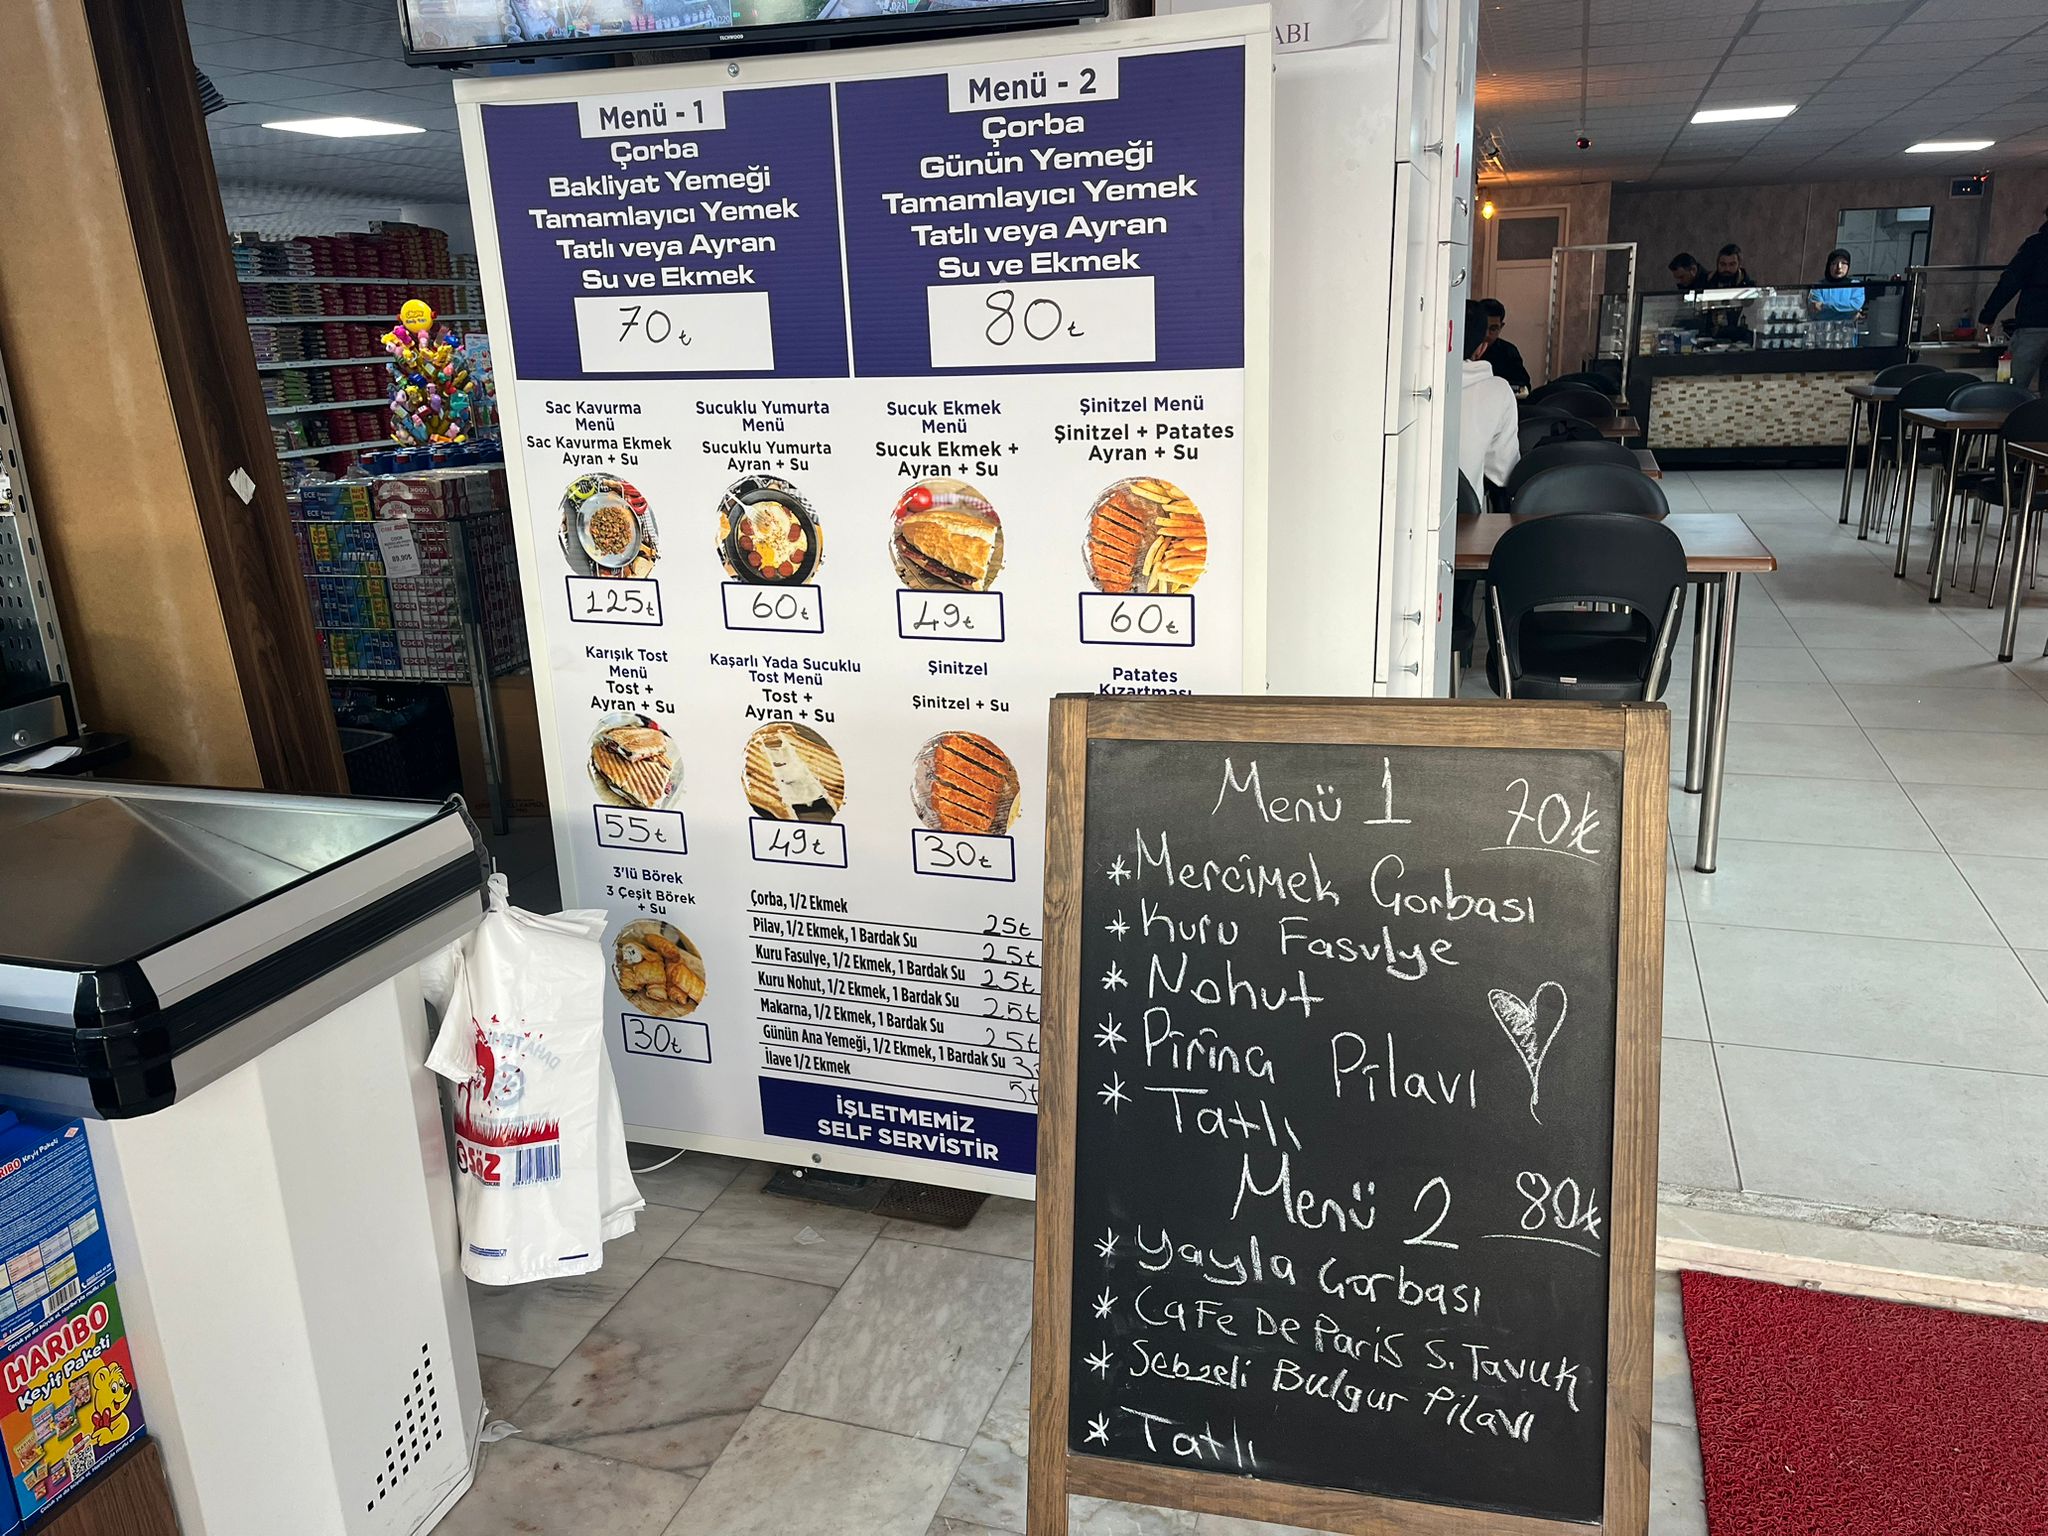 TECHWOOD
ABI
Menü - 1
Çorba
Bakliyat Yemeği
Tamamlayıcı Yemek
Tatlı veya Ayran
Su ve Ekmek
70₺
Menü - 2
Çorba
Günün Yemeği
Tamamlayıcı Yemek
Tatlı veya Ayran
Su ve Ekmek
80₺
Sac Kavurma
Menü
Sac Kavurma Ekmek
Ayran + Su
125₺
Sucuklu Yumurta
Menü
Sucuklu Yumurta
Ayran + Su
60₺
Sucuk Ekmek
Menü
Sucuk Ekmek +
Ayran + Su
49₺
Şinitzel Menü
Şinitzel + Patates
Ayran + Su
60₺
Karışık Tost
Menü
Tost +
Ayran + Su
55₺
Kaşarlı Yada Sucuklu
Tost Menü
Tost +
Ayran + Su
49₺
Şinitzel
Şinitzel + Su
30₺
Patates
Kızartması
3'lü Börek
3 Çeşit Börek
+ Su
30₺
Çorba, 1/2 Ekmek 25₺
Pilav, 1/2 Ekmek, 1 Bardak Su 25₺
Kuru Fasulye, 1/2 Ekmek, 1 Bardak Su 25₺
Kuru Nohut, 1/2 Ekmek, 1 Bardak Su 25₺
Makarna, 1/2 Ekmek, 1 Bardak Su 25₺
Günün Ana Yemeği, 1/2 Ekmek, 1 Bardak Su
İlave 1/2 Ekmek 5₺
İŞLETMEMİZ
SELF SERVİSTİR
Menü 1 70₺
*Mercimek Çorbası
*Kuru Fasulye
*Nohut
*Pirinç Pilavı
*Tatlı
Menü 2 80₺
*Yayla Çorbası
*Cafe De Paris S. Tavuk
*Sebzeli Bulgur Pilavı
*Tatlı
SÖZ
HARIBO
Keyif Paketi